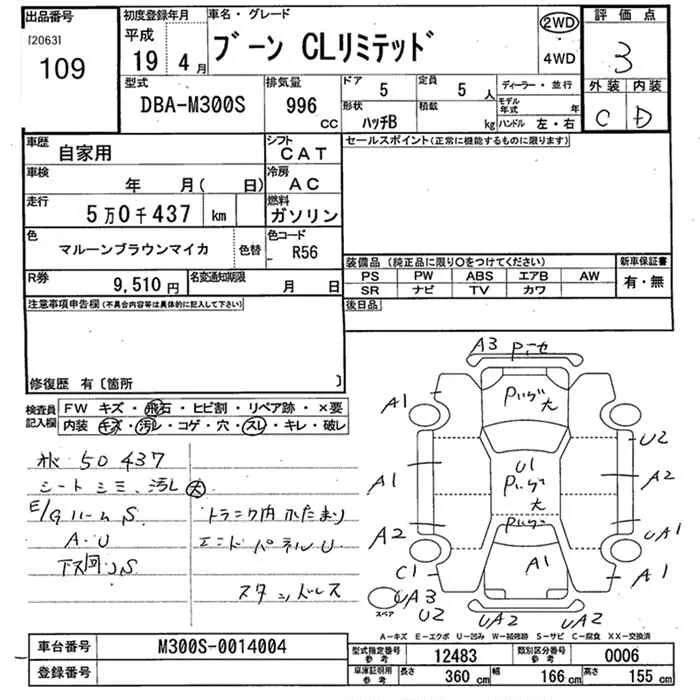 出品番号
[2063]
109
初度登録年月
平成
19 4 月
車名・グレード
ブーン CLリミテッド
2WD
4WD
評価点
3
外装 内装
C D
型式
DBA-M300S
排気量
996
CC
ドア
5
定員
5 人
形状
ハッチB
積載
kg
ディーラー・並行
モデル年式 年
ハンドル 左・右
車歴
自家用
シフト
CAT
車検
年 月( 日)
冷房
AC
走行
5万0千437 km
燃料
ガソリン
色
マルーンブラウンマイカ
色替
色コード
R56
R券
9,510 円
名変通知期限
月 日
セールスポイント(正常に機能するものに限ります)
装備品(純正品に限り○をつけてください)
PS PW ABS エアB AW
SR ナビ TV カワ
新車保証書
有・無
後日品
注意事項申告欄(不具合内容等は具体的に記入して下さい)
修復歴 有〔箇所 〕
検査員記入欄
FW キズ・飛石・ヒビ割・リペア跡・×要
内装 キズ・汚レ・コゲ・穴・スレ・キレ・破レ
50437
シートシミ、汚レ 大
E/Gルーム S
A・U
トランク内水たまり
エンドパネルU
下回りS
スタッドレス
A3
A1
U2
A1
U1
A2
A2
UA1
A1
C1
A1
スペア
UA3
U2
UA2
UA2
A-キズ E-エクボ U-凹み W-補修跡 S-サビ C-腐食 XX-交換済
車台番号
M300S-0014004
登録番号
型式指定番号
参考
12483
類別区分番号
参考
0006
車庫証明用
参考
長さ
360 cm
幅
166 cm
高さ
155 cm